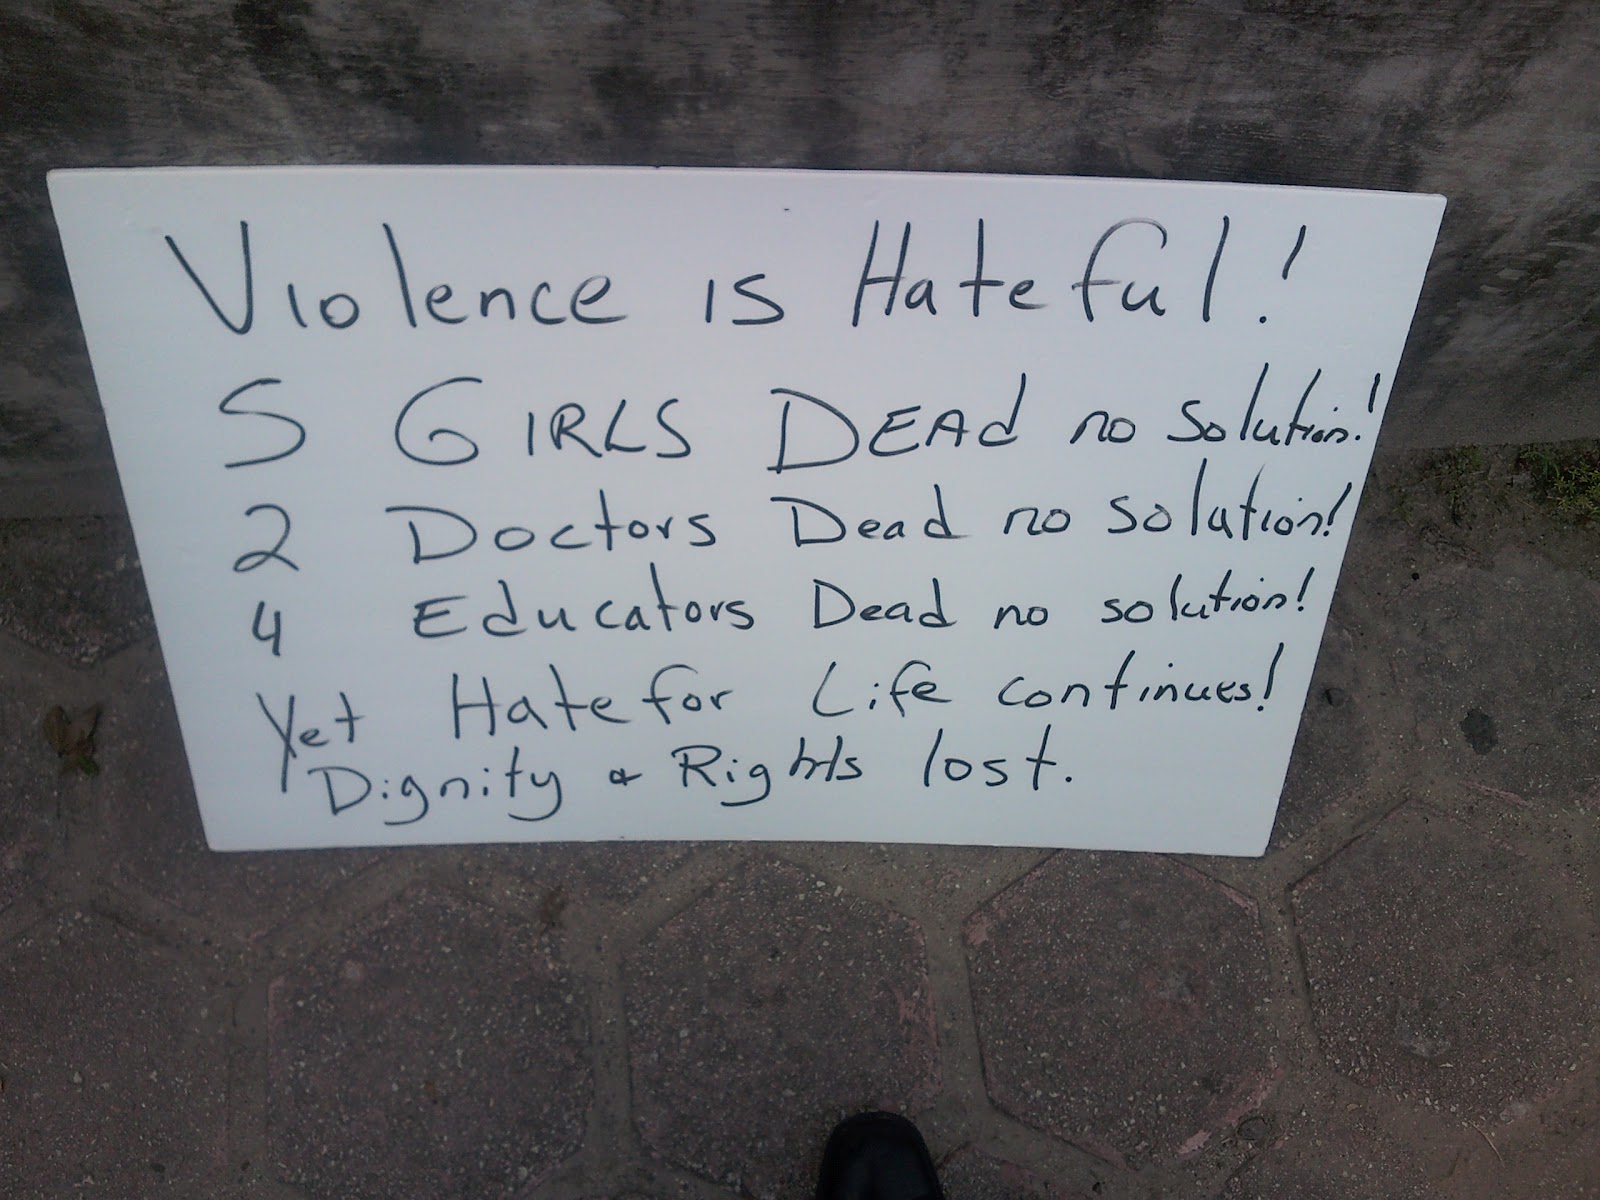 Violence is Hateful!
5 GIRLS DEAd no solution!
2 Doctors Dead no solution!
4 Educators Dead no solution!
Yet Hate for Life continues!
Dignity & Rights lost.